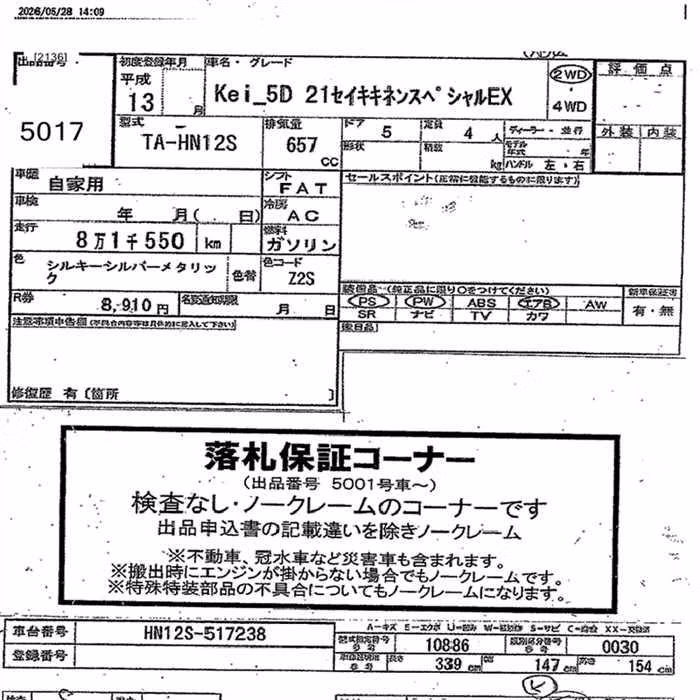 2026/05/28 14:09
出品番号 [2136]
初度登録年月
車名・グレード
評価点
平成
13 月
Kei_5D 21セイキキネンスペシャルEX
2WD
4WD
5017
型式
TA-HN12S
排気量
657 cc
ドア 5
定員 4 人
ディーラー・並行
外装 内装
形状
積載 kg
モデル年式 年
ハンドル 左・右
車歴
自家用
シフト
FAT
セールスポイント(正常に機能するものに限ります)
車検
年 月( 日)
冷房
AC
走行
8万1千550 km
燃料
ガソリン
色
シルキーシルバーメタリック
色替
色コード
Z2S
装備品(純正品に限り○をつけてください)
新車保証書
PS PW ABS エアB AW
有・無
SR ナビ TV カワ
R券
8,910円
名変通知期限
月 日
後日品
注意事項申告欄(不具合内容等は具体的に記入して下さい)
修復歴 有〔箇所 〕
落札保証コーナー
(出品番号 5001号車～)
検査なし・ノークレームのコーナーです
出品申込書の記載違いを除きノークレーム
※不動車、冠水車など災害車も含まれます。
※搬出時にエンジンが掛からない場合でもノークレームです。
※特殊特装部品の不具合についてもノークレームになります。
車台番号
HN12S-517238
登録番号
型式指定番号
参考
10886
類別区分番号
参考
0030
長さ 339 cm
幅 147 cm
高さ 154 cm